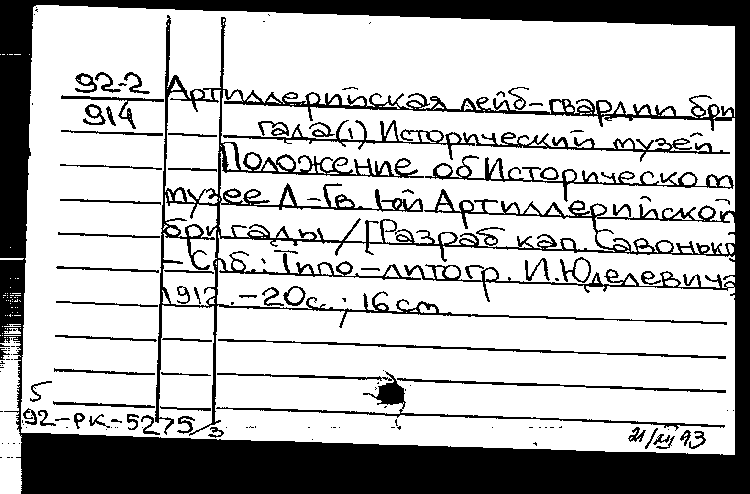 92-2
914
Артиллерийская лейб-гвардии бри
гада (1) Исторический музей.
Положение об Историческом
музее Л-Гв. 1-ой Артиллерийской
бригады / [Разраб кап. Савонько
- Спб.: Типо-литогр. И. Юделевича
1912. - 20с.; 16 cm.
5
92-РК-5275/3
21/XII 93